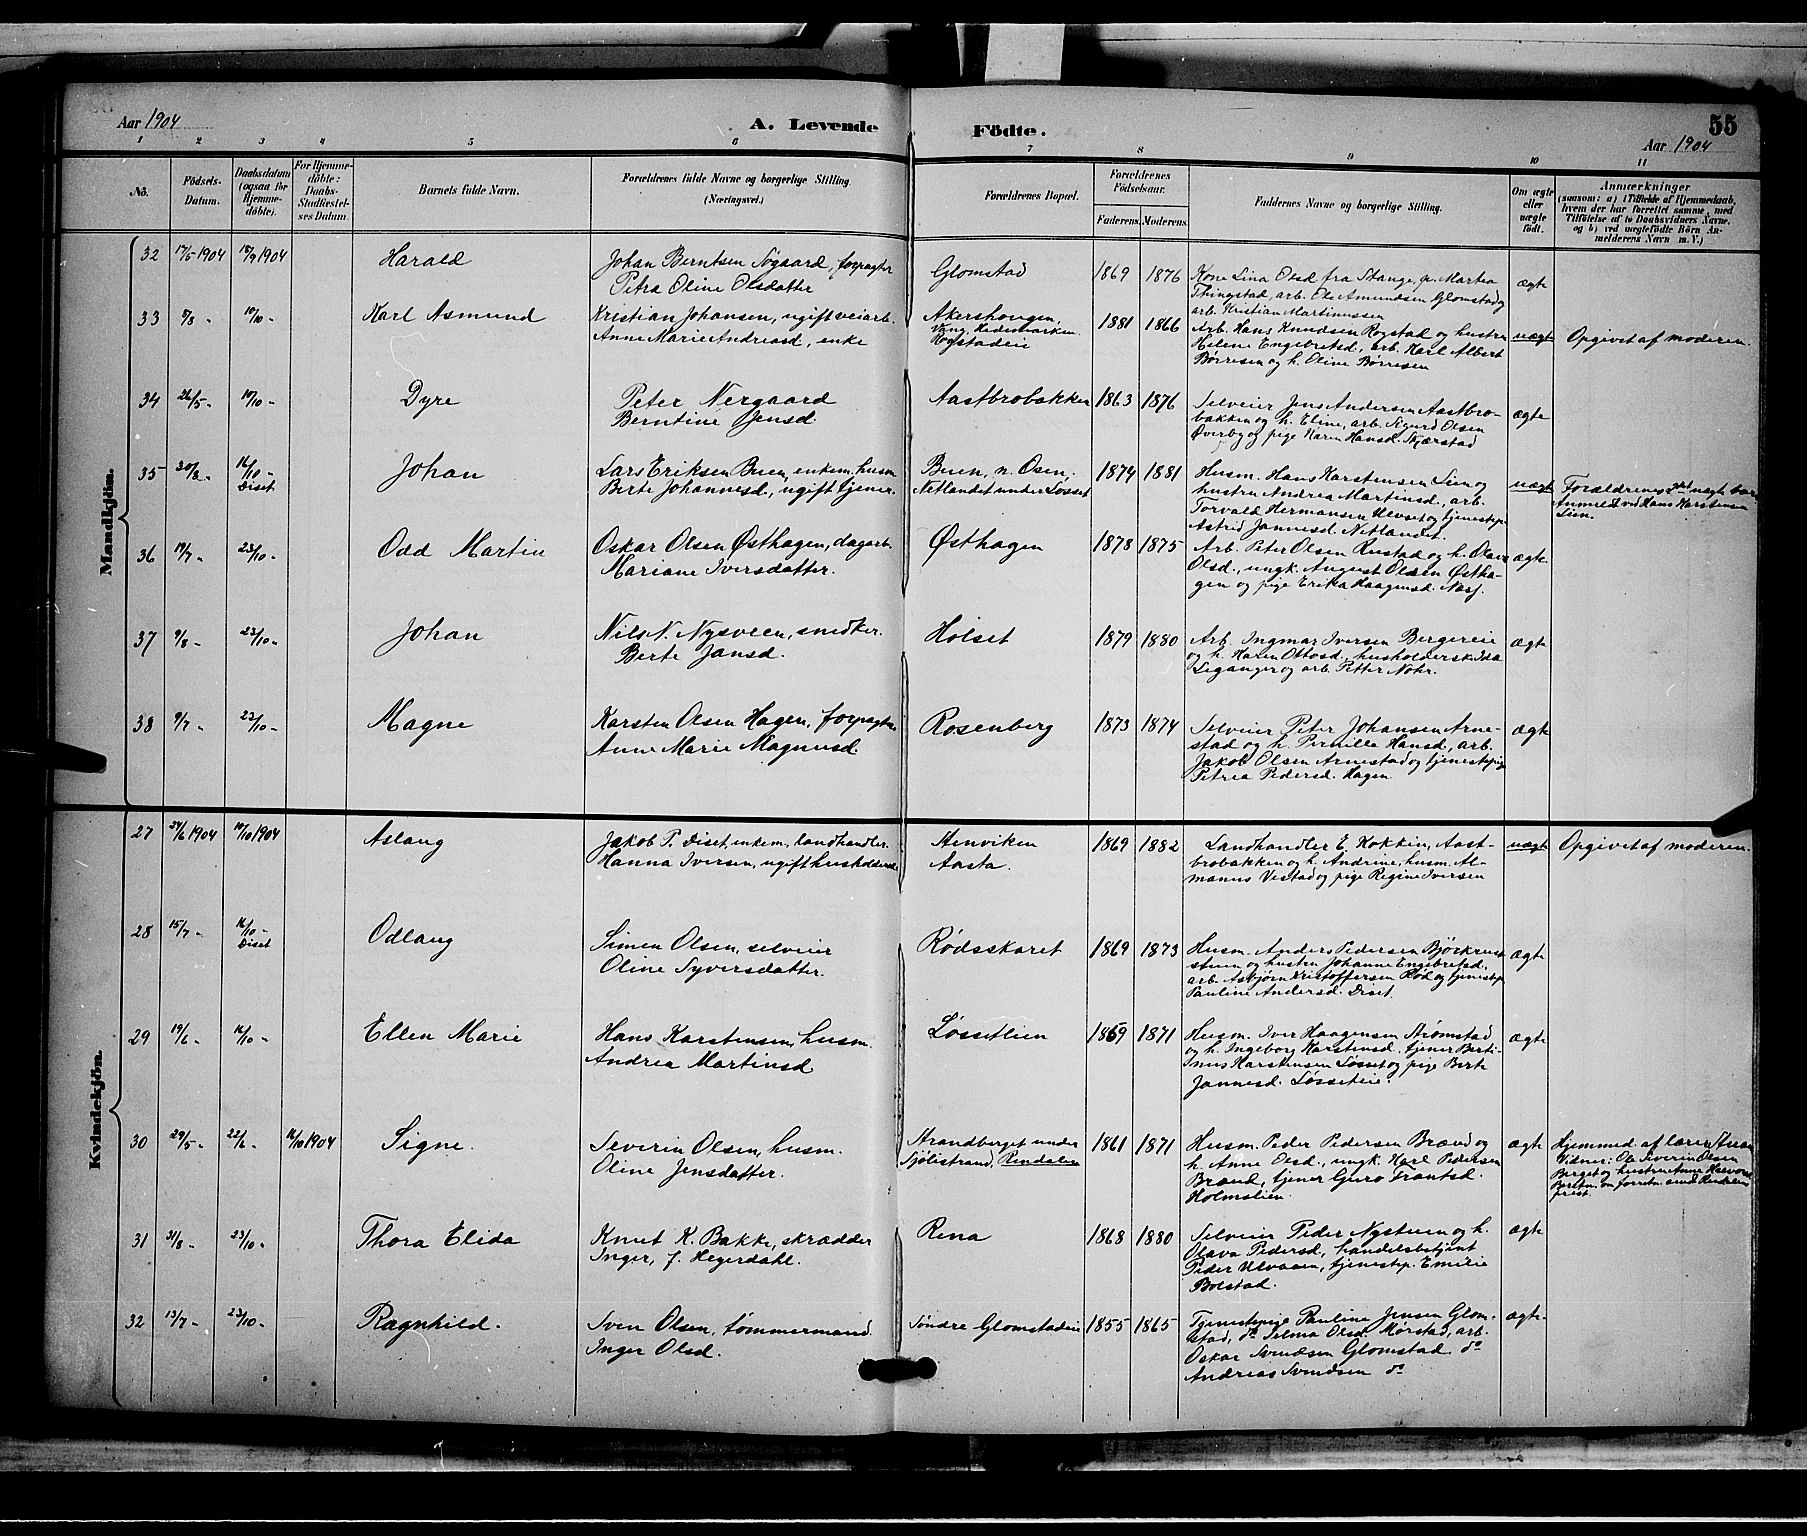 Aar 1904
A. Levende
Födte.
55
Aar 1904
1 2 3 4 5 6 7 8 9 10 11
No.
Födsels-
Datum.
Daabsdatum
(ogsaa for
Hjemme-
döbte).
For Hjemme-
döbte:
Daabs-
Stadfæstel-
ses Datum.
Barnets fulde Navn.
Forældrenes fulde Navne og borgerlige Stilling.
(Næringsvei.)
Forældrenes Bopæl.
Forældrenes
Födselsaar.
Faderens. Moderens.
Faddernes Navne og borgerlige Stilling.
Om ægte
eller
uægte
födt.
Anmærkninger
(saasom: a) i Tilfælde af Hjemmedaab,
hvem der har forrettet samme, med
Tilföielse af to Daabsvidners Navne,
og b) ved uægtefödte Börn An-
melderens Navn m. V.)
Mandkjön.
32 17/5 1904 18/9 1904 Harald
Johan Berntsen Søgaard, forpagter
Petra Oline Olsdatter
Glomstad 1869 1876
Kone Lina Olsd fra Stange, p. Martea
Thingstad, arb. Ole Amundsen Glomstad og
arb. Kristian Martinussen
ægte
33 5/8 - 10/10 - Karl Asmund
Kristian Johansen, ugift veiarb.
Anne Marie Andreasd, enke
Akershougen,
Vang, Hedemarken
Rogstadeie
1881 1866
Arb. Hans Knudsen Rogstad og hustru
Helene Engebretsd, arb. Karl Albert
Børresen og h. Oline Børresen
uægt Opgivet af moderen.
34 26/5 - 10/10 - Dyre
Peter Nergaard
Berntine Jensd
Aastbrobakken 1863 1876
Selveier Jens Andersen Aastbro-
bakken og h. Eline, arb. Sigurd Olsen
Øverby og pige Karen Hansd. Skjærstad
ægte
35 20/8 - 16/10 - Diset Johan
Lars Eriksen Buen, enkem. husm
Berte Johannesd., ugift tjener.
Buen, n. Osen,
Netlandet under Løsset
1874 1881
Husm. Hans Karstensen Lien og
hustru Andrea Martinsd, arb.
Torvald Hermansen Ulvset og tjenestep.
Astrid Jannesd. Netlandet.
uægt Forældrenes uægt barn
Anmeldt ved Hans Karstensen
Lien.
36 19/7 - 23/10 - Odd Martin
Oskar Olsen Østhagen, dagarb.
Mariane Iversdatter.
Østhagen 1878 1875
Arb. Peter Olsen Rustad og h. Olava
Olsd., ungk. August Olsen Østha-
gen og pige Erika Haagensd. Næs.
ægte
37 9/8 - 23/10 - Johan
Nils N. Nysveen, snedker.
Berte Jansd.
Holset 1879 1880
Arb. Ingmar Iversen Bergereie
og h. Karen Ottosd., husholderske Ida
Leganger og arb. Petter Nohr.
ægte
38 9/7 - 23/10 - Magne
Karsten Olsen Hagen, forpagter
Anne Marie Magnusd.
Rosenberg 1873 1874
Selveier Peter Johansen Arne-
stad og h. Pernille Hansd., arb.
Jakob Olsen Arnestad og tjenestepige
Petrea Pedersd. Hagen
ægte
Kvindekjön.
27 24/6 1904 10/10 1904 Aslaug
Jakob P. Diset, enkem, landhandler.
Hanna Iversen, ugift husholderske
Stenviken
Aasta.
1869 1882
Landhandler E. Kokkin, Aast-
brobakken og h. Andrine, husm. Al-
manus Vestad og pige Regine Iversen
uægt Opgivet af moderen.
28 15/7 - 16/10 - Diset Odlaug
Simen Olsen, selveier
Oline Syversdatter.
Rødsskaret 1869 1873
Husm. Anders Pedersen Bjørkeness-
steen og hustru Johanne Engebretsd.,
arb. Asbjørn Kristoffersen Rød og tjenestep.
Pauline Andersd. Diset.
ægte
29 19/6 - 16/10 - Ellen Marie
Hans Karstensen, husm.
Andrea Martinsd
Løssetlien 1869 1871
Husm. Iver Haagensen Strømstad
og h. Ingeborg Karstensd. tjener Berti-
nus Karstensen Løsset og pige Berte
Jannesd. Løsseteie.
ægte
30 29/5 - 22/6 - 16/10 1904 Signe.
Severin Olsen, husm.
Oline Jensdatter.
Strandberget under
Sjølistrand, Rendalen
1861 1871
Husm. Peder Pedersen Brænd og
h. Anne Olsd., ungk. Karl Pedersen
Brænd, tjener Guro Frantsd.
Holmslien.
ægte Hjemmed. af lærer
Vidner: Ole Severin Olsen
Berget og hustru Anne Halvorsd
31 31/8 - 23/10 - Thora Elida
Knut K. Bakke, skrædder
Inger, f. Hegerdahl.
Rena 1868 1880
Selveier Peder Nysteen og h.
Olava Pedersd, handelsbetjent
Peder Ulvaaen, tjenestep. Emilie
Bolstad.
ægte
32 13/7 - 23/10 - Ragnhild.
Sven Olsen, tømmermand.
Inger Olsd.
Søndre Glomstadeie 1855 1865
Tjenestepige Pauline Jensen Glom-
stad, do Selma Olsd Mørstad, arb.
Oskar Svendsen Glomstad do
Andreas Svendsen do
ægte.